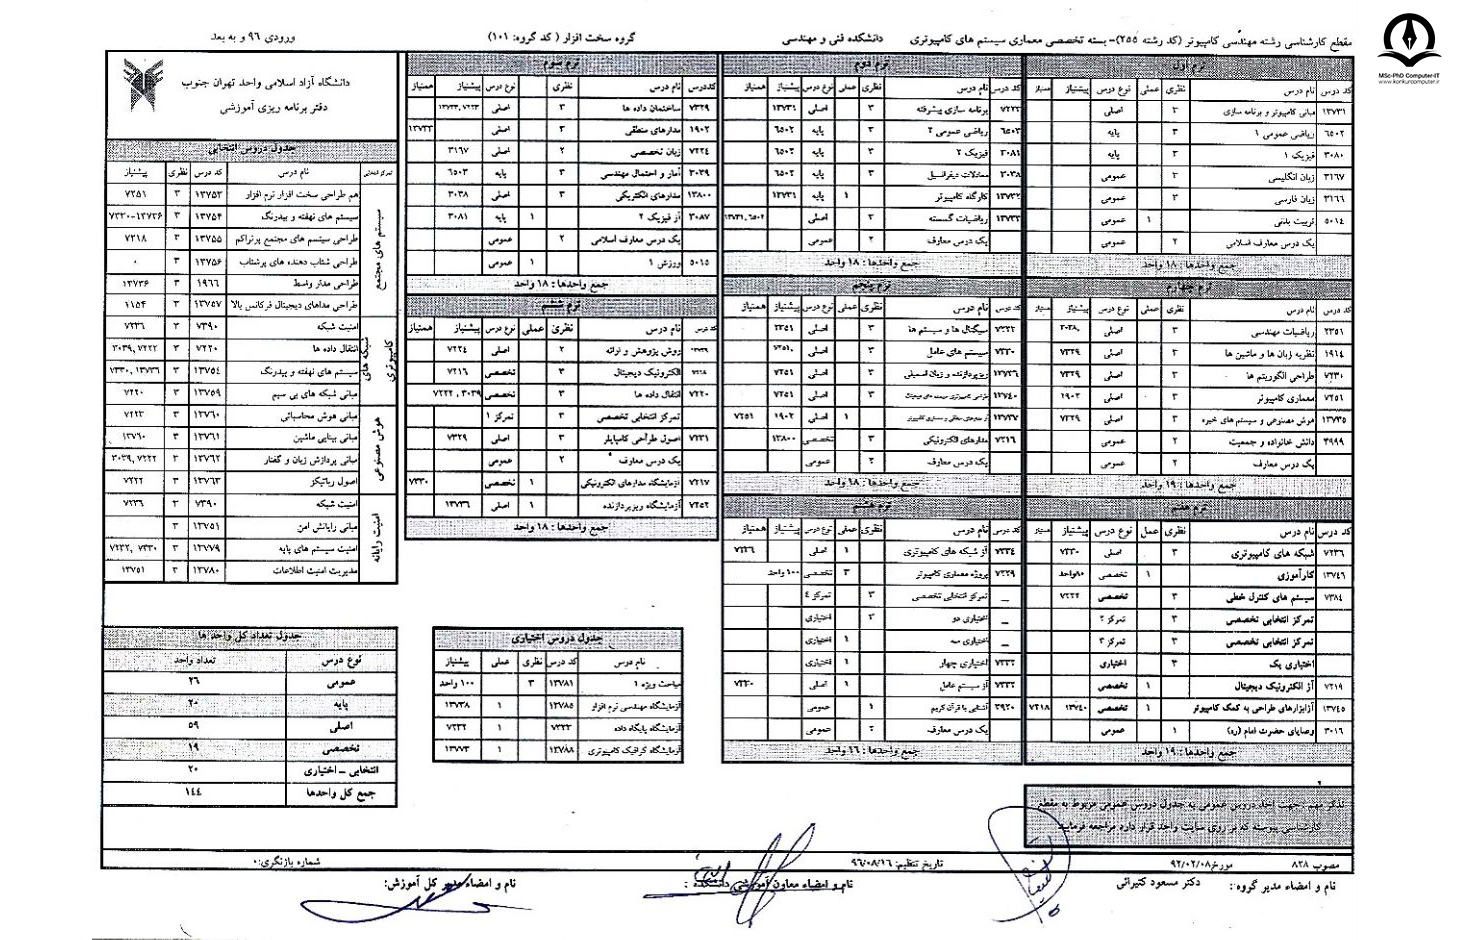 MSc-PhD Computer-IT
www.konkurcomputer.ir
مقطع کارشناسی رشته مهندسی کامپیوتر (کد رشته ۲۵۵)- بسته تخصصی معماری سیستم های کامپیوتری دانشکده فنی و مهندسی گروه سخت افزار ( کد گروه: ۱۰۱) ورودی ۹۶ و به بعد
ترم اول
کد درس نام درس نظری عملی نوع درس پیشنیاز
۱۳۷۳۱ مبانی کامپیوتر و برنامه سازی ۳ اصلی
۶۵۰۲ ریاضی عمومی ۱ ۳ پایه
۳۰۸۰ فیزیک ۱ ۳ پایه
۳۱۶۷ زبان انگلیسی ۳ عمومی
۳۱۶۶ زبان فارسی ۳ عمومی
۵۰۱۴ تربیت بدنی ۱ عمومی
یک درس معارف اسلامی ۲ عمومی
جمع واحدها : ۱۸ واحد
ترم دوم
کد درس نام درس نظری عملی نوع درس پیشنیاز همنیاز
۷۲۲۳ برنامه سازی پیشرفته ۳ اصلی ۱۳۷۳۱
۶۵۰۳ ریاضی عمومی ۲ ۳ پایه ۶۵۰۲
۳۰۸۱ فیزیک ۲ ۳ پایه ۶۵۰۲
۳۰۳۸ معادلات دیفرانسیل ۳ پایه ۶۵۰۲
۱۳۷۳۲ کارگاه کامپیوتر ۱ پایه ۱۳۷۳۱
۱۳۷۳۳ ریاضیات گسسته ۳ اصلی ۱۳۷۳۱,۶۵۰۲
یک درس معارف ۲ عمومی
جمع واحدها : ۱۸ واحد
ترم سوم
کددرس نام درس نظری عملی نوع درس پیشنیاز همنیاز
۷۳۲۹ ساختمان داده ها ۳ اصلی ۱۳۷۳۳,۷۲۲۳
۱۹۰۲ مدارهای منطقی ۳ اصلی ۱۳۷۳۳
۷۲۲۴ زبان تخصصی ۲ اصلی ۳۱۶۷
۳۰۳۹ آمار و احتمال مهندسی ۳ پایه ۶۵۰۳
۱۳۸۰۰ مدارهای الکتریکی ۳ اصلی ۳۰۳۸
۳۰۸۷ آز فیزیک ۲ ۱ پایه ۳۰۸۱
یک درس معارف اسلامی ۲ عمومی
۵۰۱۵ ورزش ۱ ۱ عمومی
جمع واحدها : ۱۸ واحد
ترم چهارم
کد درس نام درس نظری عملی نوع درس پیشنیاز همنیاز
۲۳۵۱ ریاضیات مهندسی ۳ اصلی ۳۰۳۸
۱۹۱۴ نظریه زبان ها و ماشین ها ۳ اصلی ۷۳۲۹
۷۲۳۰ طراحی الگوریتم ها ۳ اصلی ۷۳۲۹
۷۲۵۱ معماری کامپیوتر ۳ اصلی ۱۹۰۲
۱۳۷۳۵ هوش مصنوعی و سیستم های خبره ۳ اصلی ۷۳۲۹
۳۹۹۹ دانش خانواده و جمعیت ۲ عمومی
یک درس معارف ۲ عمومی
جمع واحدها : ۱۹ واحد
ترم پنجم
کد درس نام درس نظری عملی نوع درس پیشنیاز همنیاز
۷۲۲۲ سیگنال ها و سیستم ها ۳ اصلی ۲۳۵۱
۷۳۳۰ سیستم های عامل ۳ اصلی ۷۲۵۱
۱۳۷۳۶ ریزپردازنده و زبان اسمبلی ۳ اصلی ۷۲۵۱
۱۳۷۴۰ ۳ اصلی ۷۲۵۱
۱۳۷۳۷ ۱ اصلی ۱۹۰۲ ۷۲۵۱
۷۲۱۶ مدارهای الکترونیکی ۳ تخصصی ۱۳۸۰۰
یک درس معارف ۲ عمومی
جمع واحدها : ۱۸ واحد
ترم ششم
کد درس نام درس نظری عملی نوع درس پیشنیاز همنیاز
روش پژوهش و ارائه ۲ اصلی ۷۲۲۴
۷۲۱۸ الکترونیک دیجیتال ۳ تخصصی ۷۲۱۶
۷۲۲۰ انتقال داده ها ۳ تخصصی ۷۲۲۲ , ۳۰۳۹
تمرکز انتخابی تخصصی ۳ تمرکز ۱
۷۲۳۱ اصول طراحی کامپایلر ۳ اصلی ۷۳۲۹
یک درس معارف ۲ عمومی
۷۲۱۷ آزمایشگاه مدارهای الکترونیکی ۱ تخصصی ۷۳۳۰
۷۲۵۲ آزمایشگاه ریزپردازنده ۱ اصلی ۱۳۷۳۶
جمع واحدها : ۱۸ واحد
ترم هفتم
کد درس نام درس نظری عمل نوع درس پیشنیاز همنیاز
۷۲۳۶ شبکه های کامپیوتری ۳ اصلی ۷۳۳۰
۱۳۷۴۶ کارآموزی ۱ تخصصی ۸۰واحد
۷۳۸۴ سیستم های کنترل خطی ۳ تخصصی ۷۲۲۲
تمرکز انتخابی تخصصی ۳ تمرکز ۲
تمرکز انتخابی تخصصی ۳ تمرکز ۳
اختیاری یک ۳ اختیاری
۷۲۱۹ آز الکترونیک دیجیتال ۱ تخصصی
۱۳۷۴۵ آزابزارهای طراحی به کمک کامپیوتر ۱ تخصصی ۱۳۷۴۰ ۷۲۱۸
۳۰۱۶ وصایای حضرت امام (ره) ۱ عمومی
جمع واحدها : ۱۹ واحد
ترم هشتم
کد درس نام درس نظری عملی نوع درس پیشنیاز همنیاز
۷۳۳۴ آز شبکه های کامپیوتری ۱ اصلی ۷۲۳۶
۷۲۲۹ پروژه معماری کامپیوتر ۳ تخصصی ۱۰۰واحد
_ تمرکز انتخابی تخصصی ۳ تمرکز ٤
اختیاری دو ۳ اختیاری
_ اختیاری سه ۱ اختیاری
۷۳۳۲ اختیاری چهار ۱ اختیاری
۷۳۳۲ آز سیستم عامل ۱ اصلی ۷۳۳۰
۳۹۲۰ آشنایی با قرآن کریم ۱ عمومی
یک درس معارف ۲ عمومی
جمع واحدها : ۱٦ واحد
دانشگاه آزاد اسلامی واحد تهران جنوب
دفتر برنامه ریزی آموزشی
جدول دروس انتخابی
نام درس کد درس نظری پیشنیاز
سیستم های مجتمع
هم طراحی سخت افزار نرم افزار ۱۳۷۵۳ ۳ ۷۲۵۱
سیستم های نهفته و بیدرنگ ۱۳۷۵۴ ۳ ۷۳۳۰-۱۳۷۳۶
طراحی سیستم های مجتمع پرتراکم ۱۳۷۵۵ ۳ ۷۲۱۸
طراحی شتاب دهنده های پرشتاب ۱۳۷۵۶ ۳ ۰
طراحی مدار واسط ۱۹۶۶ ۳ ۱۳۷۳۶
طراحی مدارهای دیجیتال فرکانس بالا ۱۳۷۵۷ ۳ ۱۱۵۴
شبکه های کامپیوتری
امنیت شبکه ۷۳۹۰ ۳ ۷۲۳۶
انتقال داده ها ۷۲۲۰ ۳ ۳۰۳۹,۷۲۲۲
سیستم های نهفته و بیدرنگ ۱۳۷۵۴ ۳ ۷۳۳۰,۱۳۷۳۶
مبانی شبکه های بی سیم ۱۳۷۵۹ ۳ ۷۲۲۰
هوش مصنوعی
مبانی هوش محاسباتی ۱۳۷۶۰ ۳ ۷۲۲۳
مبانی بینایی ماشین ۱۳۷۶۱ ۳ ۱۳۷۶۰
مبانی پردازش زبان و گفتار ۱۳۷۶۲ ۳ ۳۰۳۹,۷۲۲۲
اصول رباتیکز ۱۳۷۶۳ ۳ ۷۲۲۲
امنیت رایانه
امنیت شبکه ۷۳۹۰ ۳ ۷۲۳۶
مبانی رایانش امن ۱۳۷۵۱ ۳
امنیت سیستم های پایه ۱۳۷۷۹ ۳ ۷۲۳۲, ۷۳۳۰
مدیریت امنیت اطلاعات ۱۳۷۸۰ ۳ ۱۳۷۵۱
جدول تعداد کل واحد ها
نوع درس تعداد واحد
عمومی ۲۶
پایه ۲۰
اصلی ۵۹
تخصصی ۱۹
انتخابی – اختیاری ۲۰
جمع کل واحدها ۱٤٤
جدول دروس اختیاری
نام درس کد درس نظری عملی پیشنیاز
مباحث ویژه ۱ ۱۳۷۸۱ ۳ ۱۰۰ واحد
آزمایشگاه مهندسی نرم افزار ۱۳۷۸۵ ۱ ۱۳۷۳۸
آزمایشگاه پایگاه داده ۷۳۳۳ ۱ ۷۲۳۲
آزمایشگاه گرافیک کامپیوتری ۱۳۷۸۸ ۱ ۱۳۷۷۳
تذکر مهم : جهت اخذ دروس عمومی به جدول دروس عمومی مربوط به مقطع
کارشناسی پیوسته که بر روی سایت واحد قرار دارد مراجعه فرمایید
مصوب ۸۲۸ مورخ۹۲/۰۲/۰۸ تاریخ تنظیم: ۹۶/۰۸/۱۶ شماره بازنگری:۰
نام و امضاء مدیر گروه : دکتر مسعود کثیرائی نام و امضاء معاون آموزشی دانشکده : نام و امضاء مدیر کل آموزش: